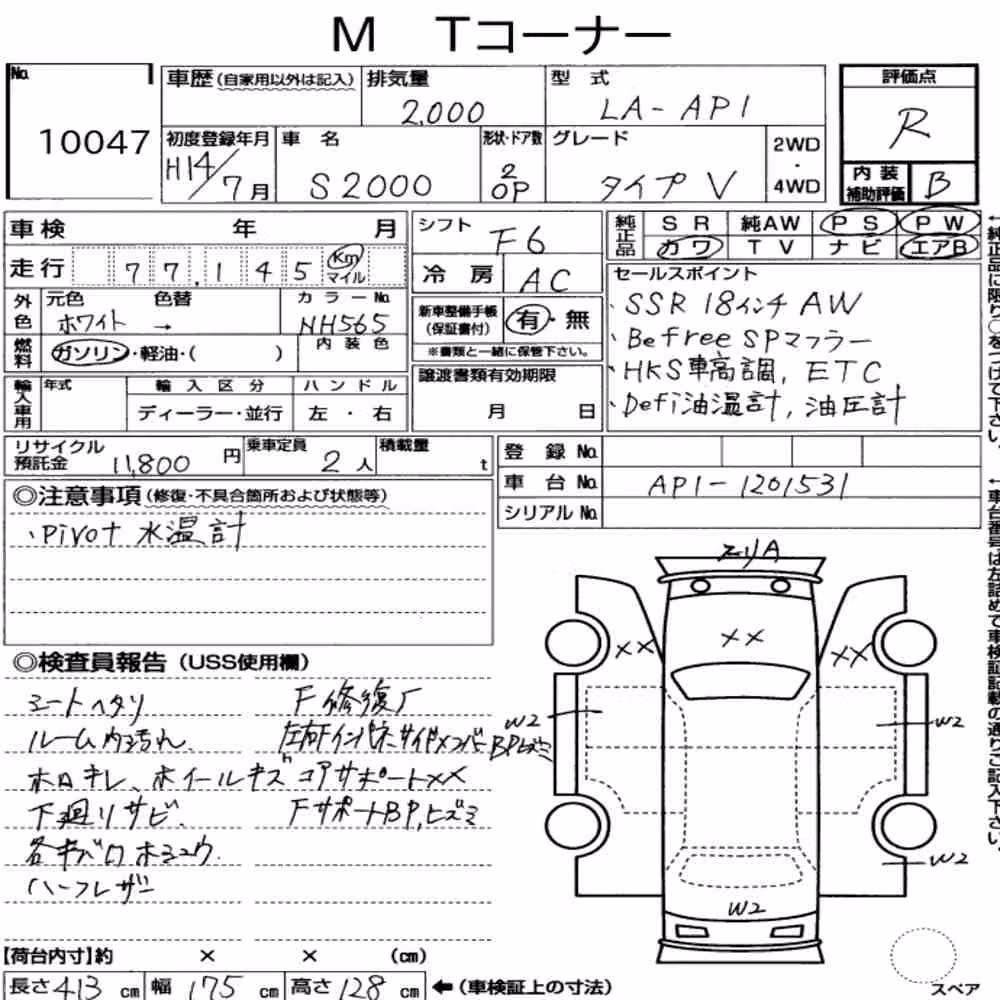 M Tコーナー
No.
10047
車歴(自家用以外は記入) 排気量 2,000 型式 LA-AP1
評価点 R
初度登録年月 H14/7月 車名 S2000 形状・ドア数 2 OP グレード タイプV 2WD・4WD
内装補助評価 B
車検 年 月
走行 77,145 Km マイル
シフト F6
冷房 AC
純正品 SR 純AW PS PW
カワ TV ナビ エアB
外色 元色 ホワイト 色替 → カラーNo. NH565
燃料 ガソリン・軽油・( ) 内装色
新車整備手帳(保証書付) 有・無
※書類と一緒に保管下さい。
譲渡書類有効期限
月 日
セールスポイント
・SSR 18インチ AW
・Befree SPマフラー
・HKS車高調, ETC
・Defi油温計, 油圧計
輸入車用 年式 輸入区分 ハンドル
ディーラー・並行 左・右
リサイクル預託金 11,800円 乗車定員 2人 積載量 t
登録No.
車台No. AP1-1201531
シリアルNo.
◎注意事項(修復・不具合箇所および状態等)
・Pivot 水温計
◎検査員報告(USS使用欄)
シートヘタリ
ルーム内汚れ
ホロキレ、ホイールキズ
下廻リサビ
各キズ
ハーフレザー
F修復有
左右Fインパネ、サイドメンバーBPヒズミ
コアサポートXX
FサポートBP,ヒズミ
エリA
XX
XX
XX
W2
W2
W2
W2
スペア
【荷台内寸】約 × × (cm)
長さ413cm 幅175cm 高さ128cm ←(車検証上の寸法)
←純正品に限り○をつけて下さい。
←車台番号は左詰めで車検証記載の通りご記入下さい。